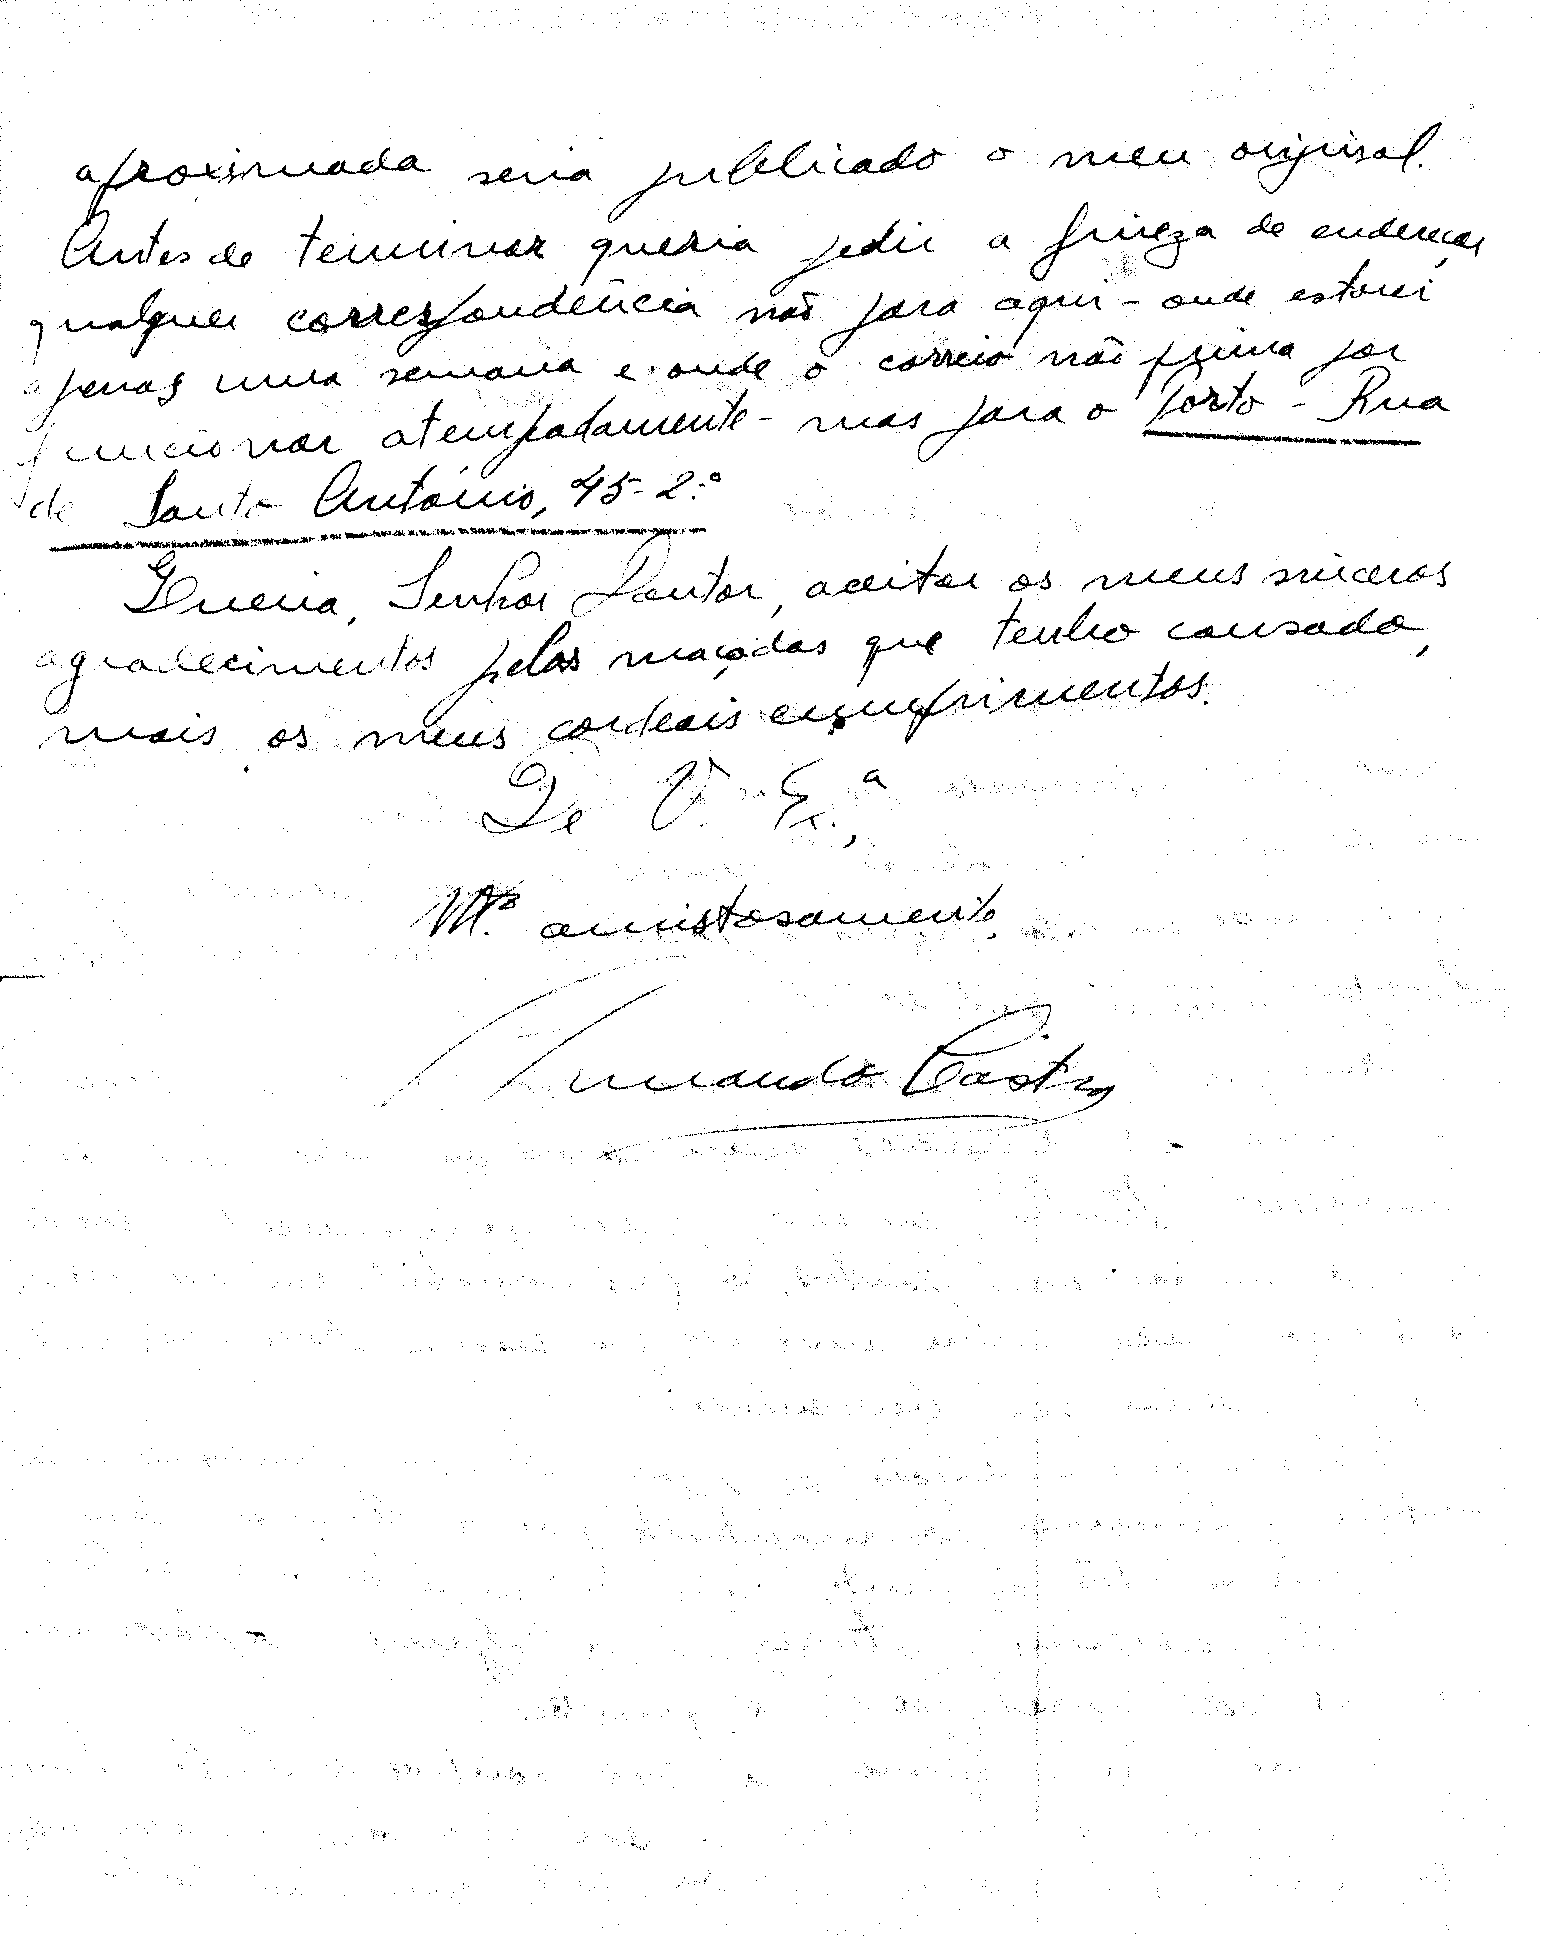 aproximada seria publicado o meu original.
Antes de terminar queria pedir a fineza de endereçar
qualquer correspondência não para aqui - onde estarei
apenas uma semana e onde o correio não prima por
funcionar atempadamente - mas para o Porto - Rua
de Santo António, 45-2.º
Queria, Senhor Doutor, aceitar os meus sinceros
agradecimentos pelas maçadas que tenho causado,
mais os meus cordeais cumprimentos.
De V. Ex.ª,
M.to amistosamente,
Armando Castro